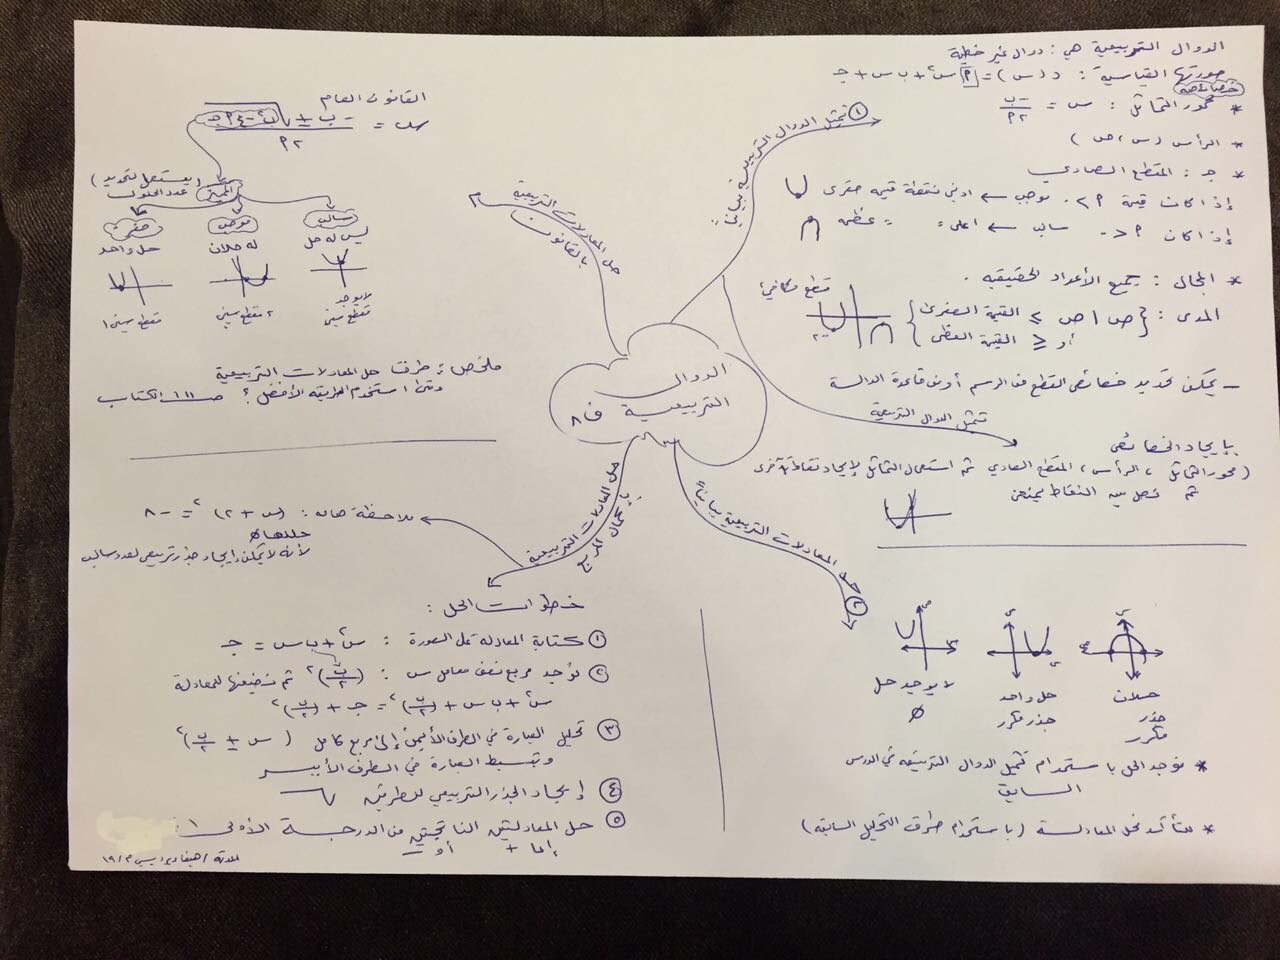 الدوال التربيعية ف ٨
① تمثيل الدوال التربيعية بيانياً
الدوال التربيعية هي : دوال غير خطية
صورتها القياسية : د(س) = أ س² + ب س + جـ
خصائصه
* محور التماثل : س = -ب / ٢أ
* الرأس (س ، ص)
* جـ : المقطع الصادي
إذا كان قيمة أ > ٠ موجب ← ادنى نقطة قيمة صغرى
إذا كان أ < ٠ سالب ← اعلى = = عظمى
* المجال : جميع الأعداد الحقيقية .
المدى : { ص | ص ≥ القيمة الصغرى
أو ≤ القيمة العظمى }
قطع مكافئ
– يمكن تحديد خصائص القطع من الرسم أو من قاعدة الدالة
تمثيل الدوال التربيعية
بإيجاد الخصائص
(محور التماثل ، الرأس ، المقطع الصادي ثم استعمال التماثل لإيجاد نقاط أخرى
ثم نصل بين النقاط بمنحنى
② حل المعادلات التربيعية بيانياً
حلان
جذر
مكرر
حل واحد
جذر مكرر
لا يوجد حل
∅
* نوجد الحل باستخدام تمثيل الدوال التربيعية في الدرس
السابق
* للتأكد نحل المعادلة (باستخدام طرق التحليل السابقة)
حل المعادلات التربيعية
بإكمال المربع
ملاحظة هامة : (س + ٢)² = -٨
حلها ∅
لأنه لا يمكن إيجاد جذر تربيعي لعدد سالب
خطوات الحل :
① كتابة المعادلة على الصورة : س² + ب س = جـ
② نوجد مربع نصف معامل س : (ب/٢)² ثم نضيفها للمعادلة
س² + ب س + (ب/٢)² = جـ + (ب/٢)²
③ تحليل العبارة في الطرف الأيمن إلى مربع كامل (س ± ب/٢)²
وتبسيط العبارة في الطرف الأيسر
④ إيجاد الجذر التربيعي للطرفين √
⑤ حل المعادلتين الناتجتين من الدرجة الأولى
إما + أو –
حل المعادلات التربيعية
بالقانون
القانون العام
س = -ب ± √ب² - ٤أجـ / ٢أ
المميز (يستعمل لتحديد عدد الحلول)
سالب
ليس له حل
لا يوجد
مقطع سيني
موجب
له حلان
٢ مقطع سيني
صفر
حل واحد
مقطع سيني ١
ملخص : طرق حل المعادلات التربيعية
ومتى استخدم الطريقة الأفضل ؟ صـ ١١١ الكتاب